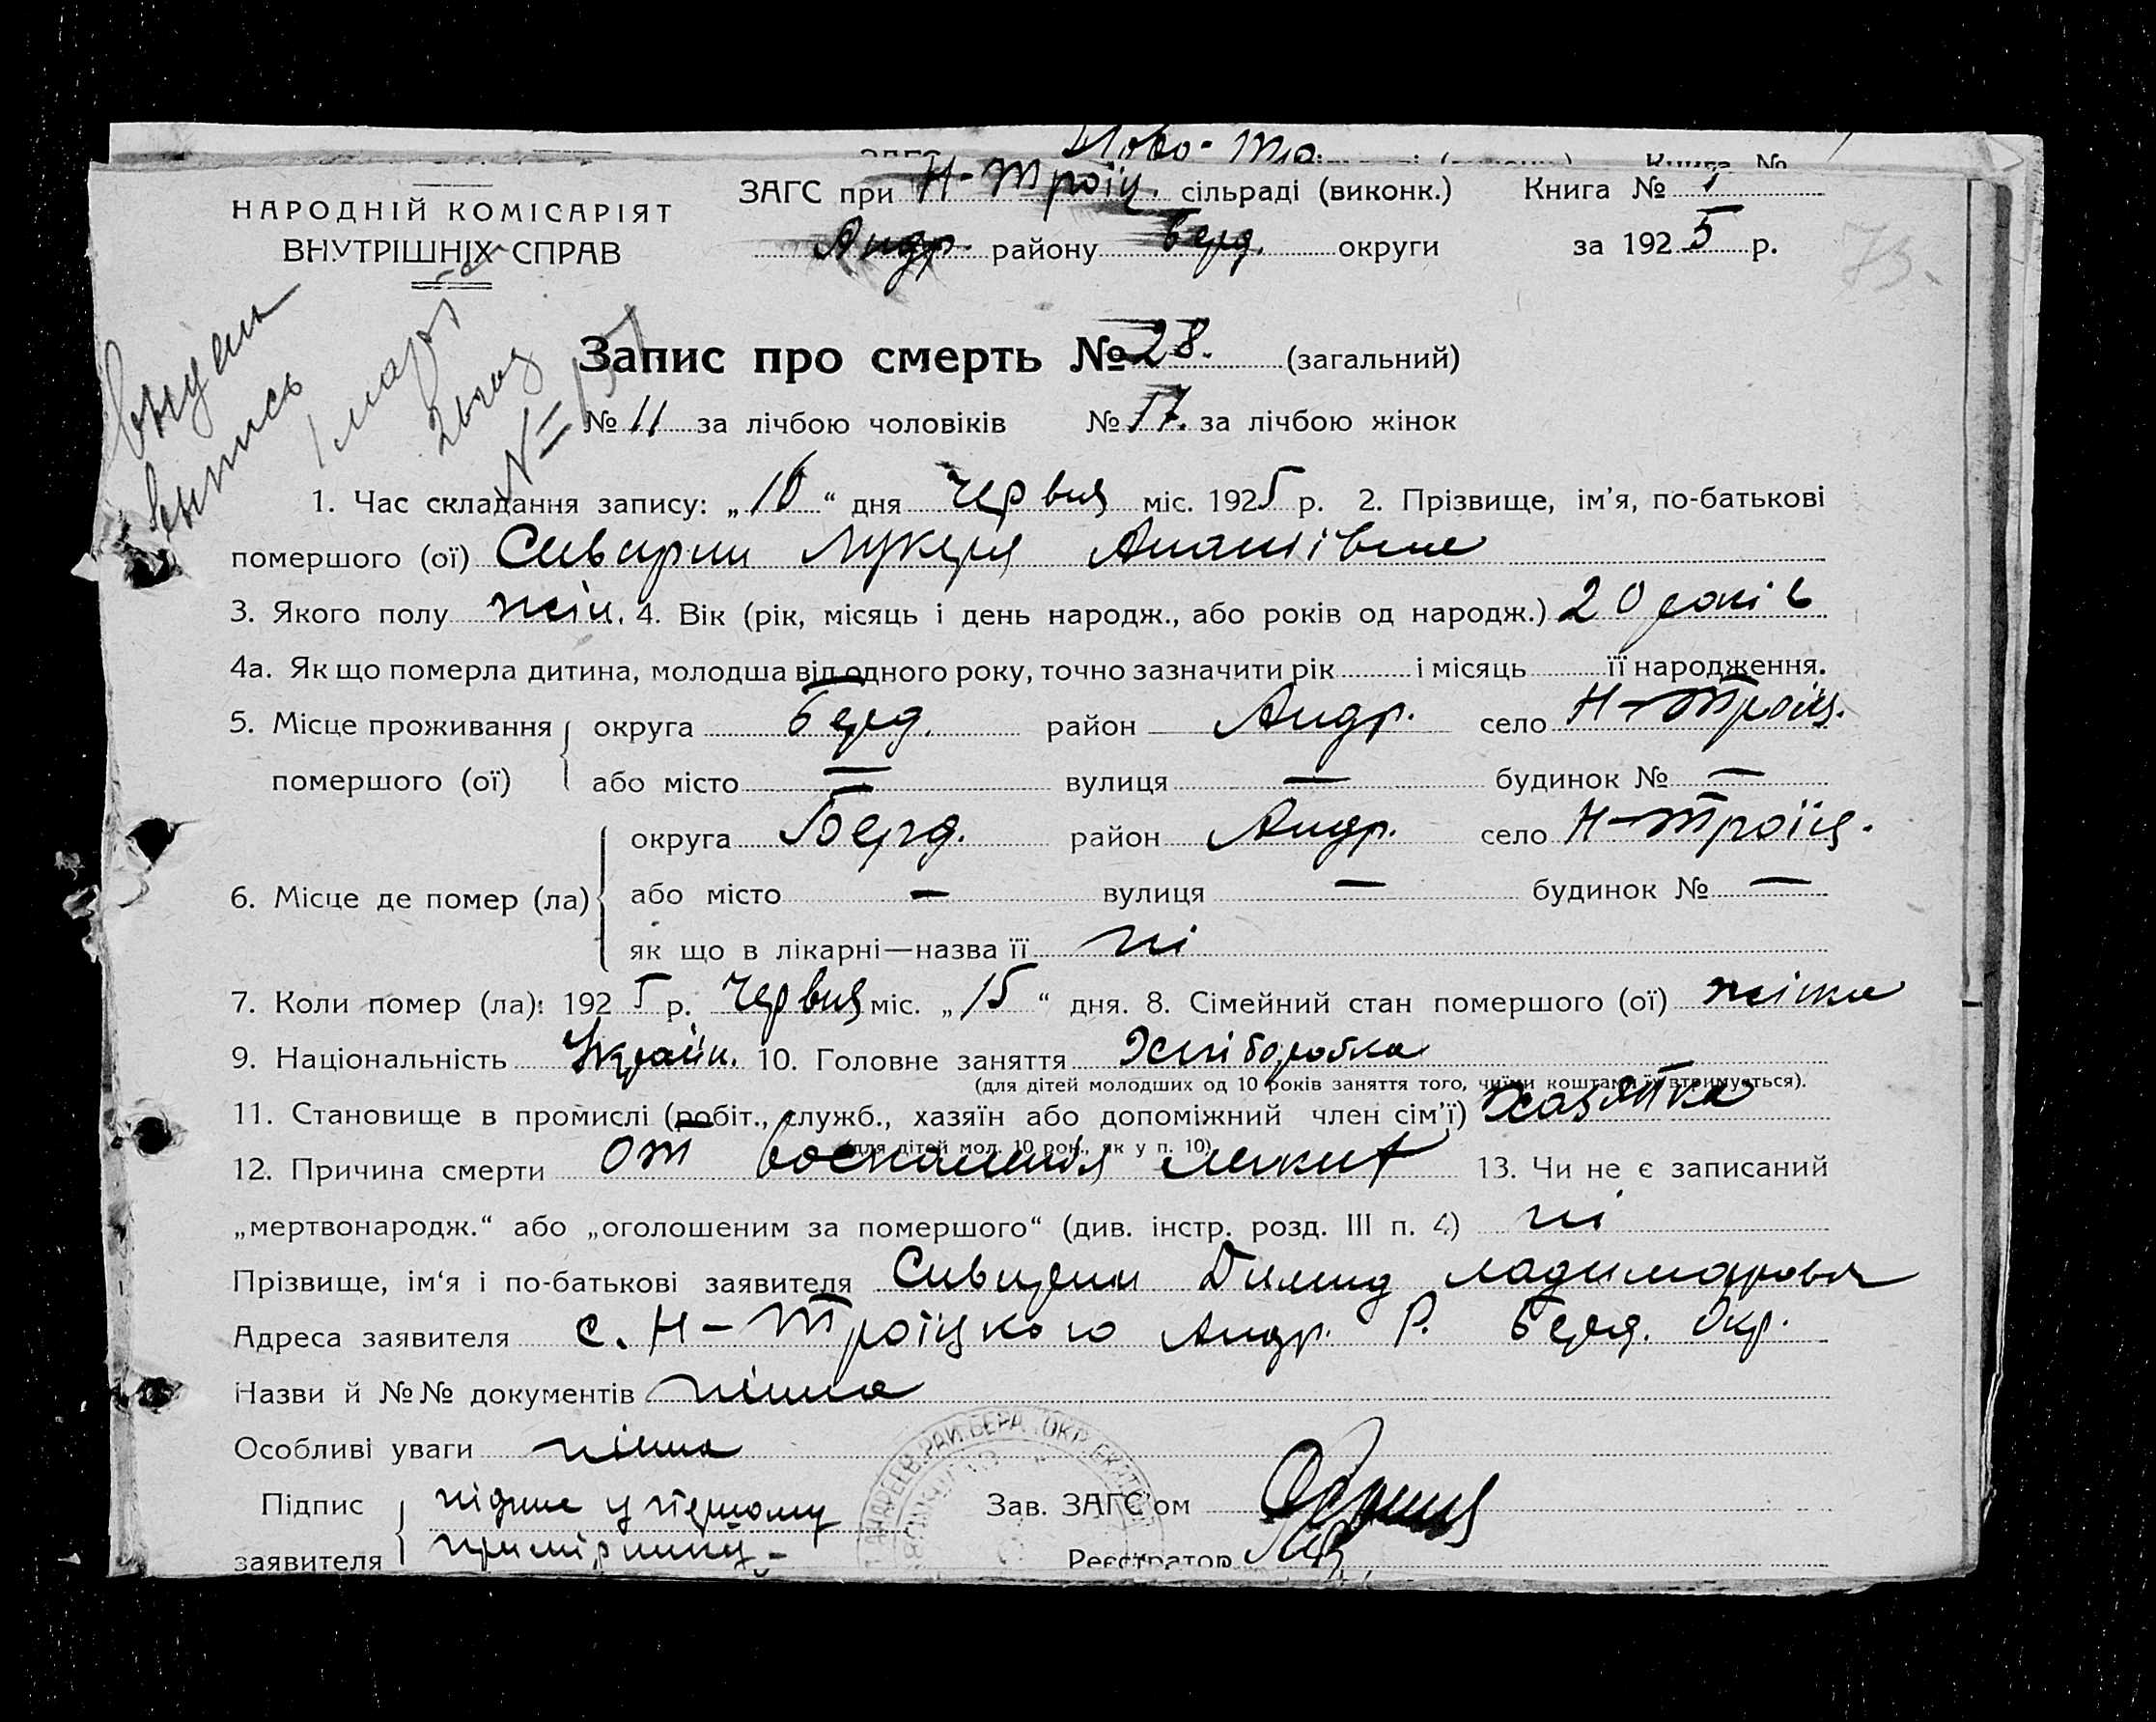 Ново-Тро
ЗАГС при Н-Троїц. сільраді (виконк.) Книга № 1
НАРОДНІЙ КОМІСАРІЯТ
ВНУТРІШНІХ СПРАВ
Андр. району Берд. округи за 1925 р.
73.
Запис про смерть № 28. (загальний)
№ 11 за лічбою чоловіків № 17. за лічбою жінок
1. Час складання запису: „16“ дня червня міс. 1925 р. 2. Прізвище, ім'я, по-батькові
помершого (ої) Лукеря
3. Якого полу жін. 4. Вік (рік, місяць і день народж., або років од народж.) 20 років
4а. Як що померла дитина, молодша від одного року, точно зазначити рік і місяць її народження.
5. Місце проживання округа Берд. район Андр. село Н-Троїц.
помершого (ої) або місто — вулиця — будинок № —
округа Берд. район Андр. село Н-Троїц.
6. Місце де помер (ла) або місто — вулиця — будинок № —
як що в лікарні—назва її ні
7. Коли помер (ла): 1925 р. червня міс. „15“ дня. 8. Сімейний стан помершого (ої) жінка
9. Національність Україн. 10. Головне заняття Хліборобка
(для дітей молодших од 10 років заняття того, чиїми коштами їх втримується).
11. Становище в промислі (робіт., служб., хазяїн або допоміжний член сім'ї) Хазяйка
(для дітей мол. 10 рок., як у п. 10)
12. Причина смерти от воспаления легких 13. Чи не є записаний
„мертвонародж.“ або „оголошеним за помершого“ (див. інстр. розд. III п. 4) ні
Прізвище, ім'я і по-батькові заявителя
Адреса заявителя с. Н-Троїцкого Андр. Р. Берд. Окр.
Назви й №№ документів нима
Особливі уваги нима
Підпис підпис у першому Зав. ЗАГС'ом
заявителя примірнику - Реєстратор